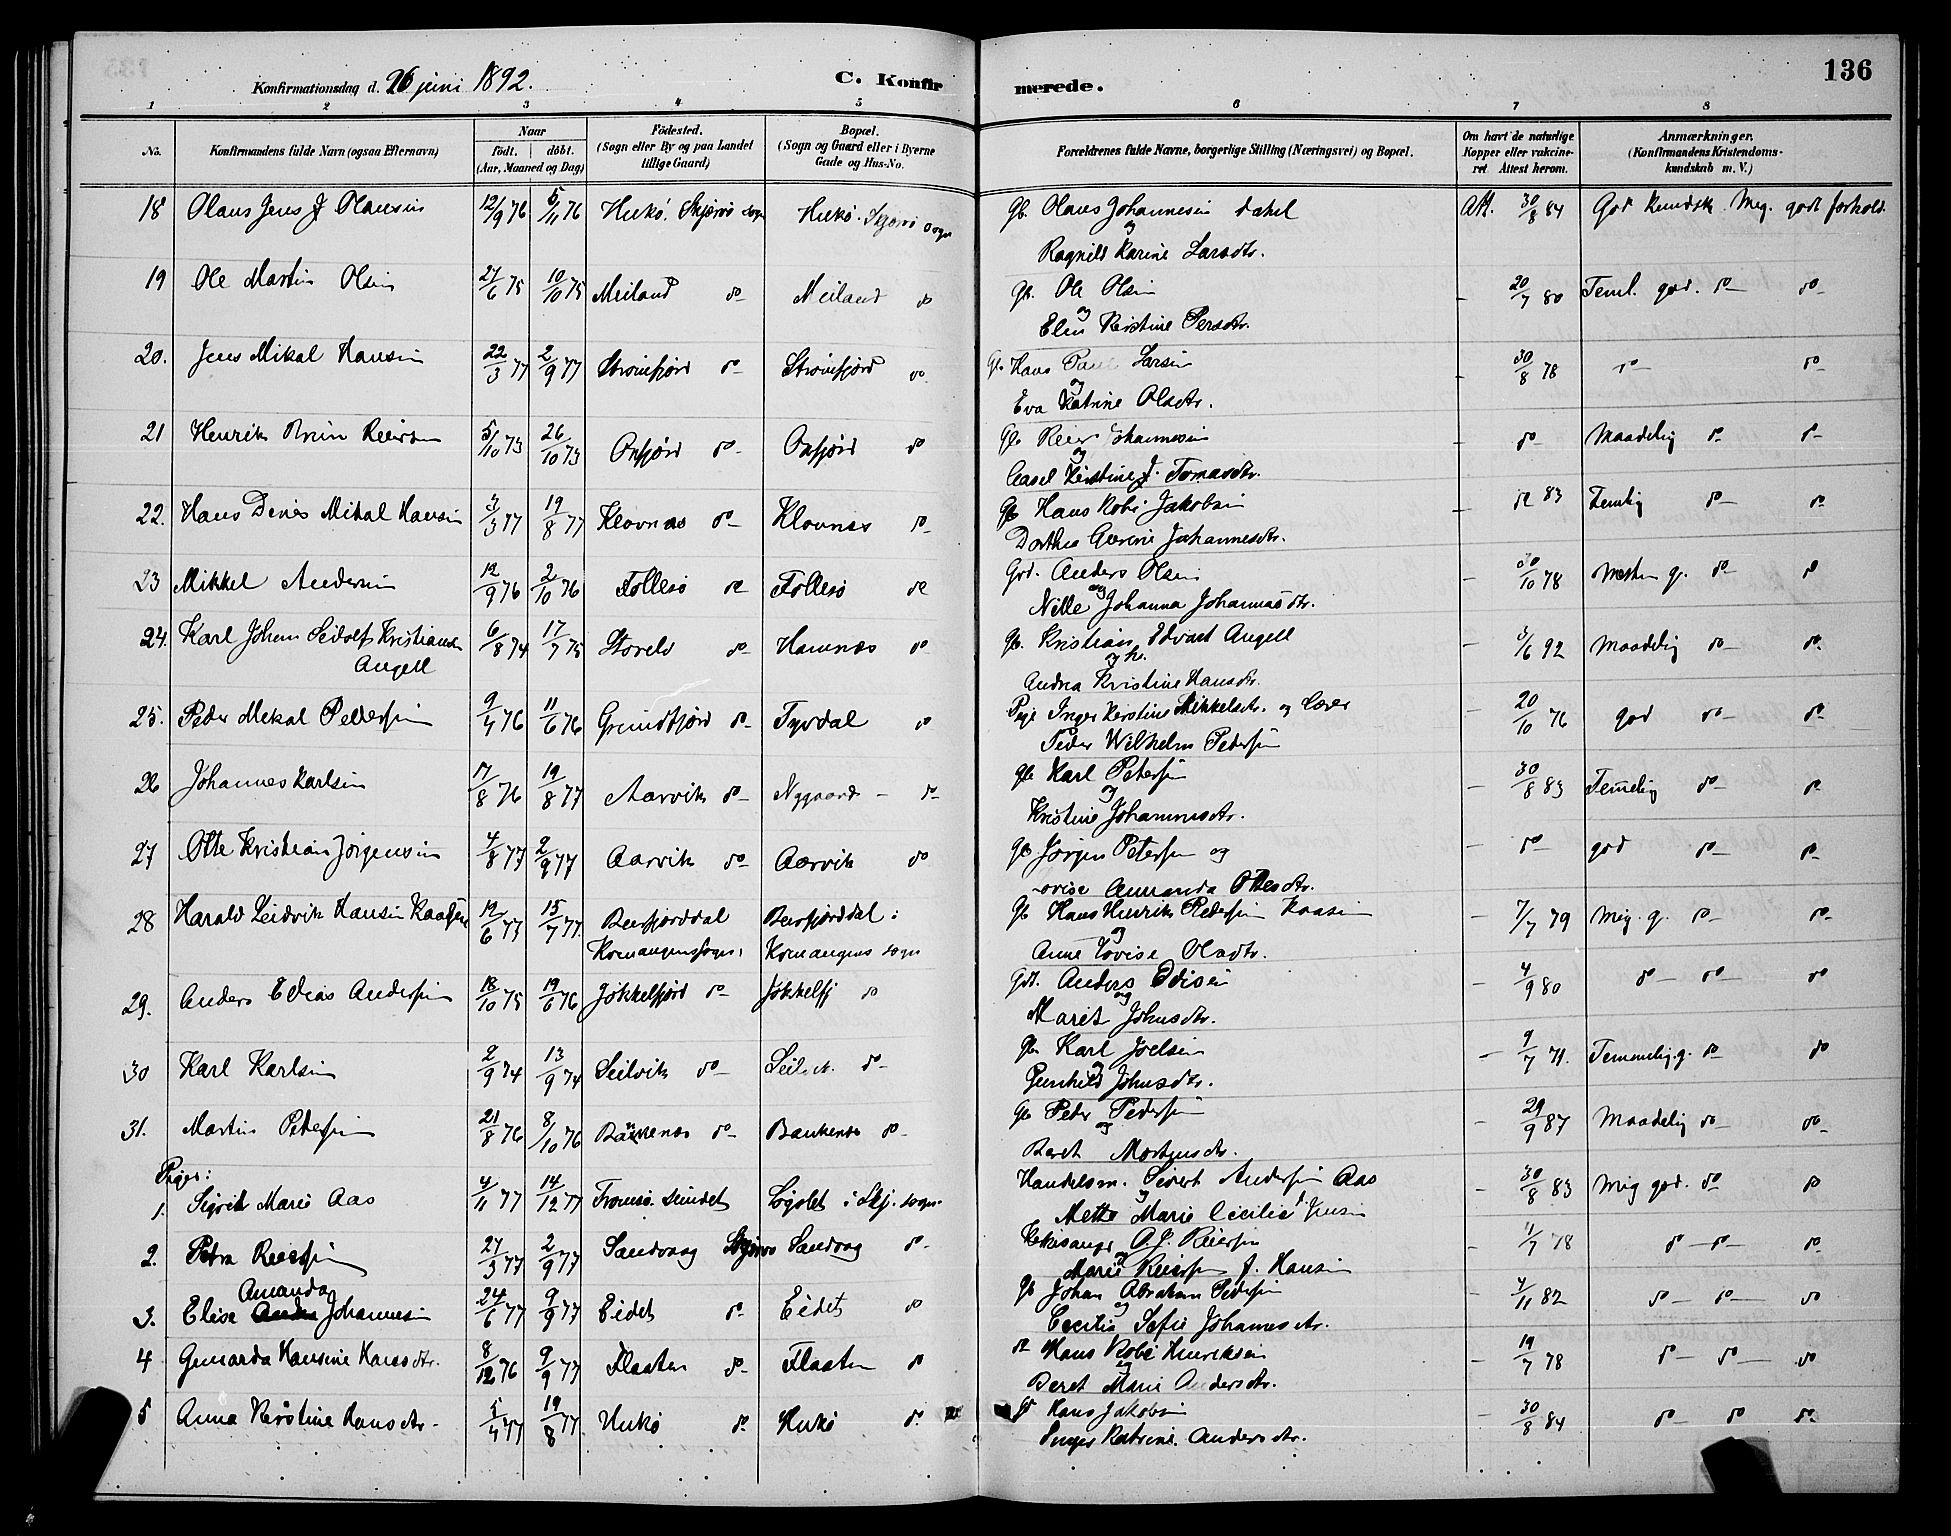 136
Konfirmationsdag d. 26 juni 1892.
C. Konfirmerede.
1 2 3 4 5 6 7 8
No. Konfirmandens fulde Navn (ogsaa Efternavn) Naar født. døbt. (Aar, Maaned og Dag) Fødested. (Sogn eller By og paa Landet tillige Gaard) Bopæl. (Sogn og Gaard eller i Byerne Gade og Hus-No. Forældrenes fulde Navne, borgerlige Stilling (Næringsvei) og Bopæl. Om havt de naturlige Kopper eller vakcineret Attest herom. Anmærkninger. (Konfirmandens Kristendomskundskab m. V.)
18 Olaus Jens J Olausen 12/9 76 5/11 76 Hukø. Skjervø sogn Hukø. Skjervø sogn Gb. Olaus Johannesen Dahl Att. 30/8 84 God Kundsk. Meg. godt forhold.
og
Ragnild Karine Larsdtr.
19 Ole Martin Olsen 27/6 75 10/10 75 Meiland do Meiland do Gb. Ole Olsen - 20/7 80 Teml. god. do do
og
Elen Kristine Persdtr.
20. Jens Mikal Hansen 22/3 77 2/9 77 Straumfjord do Straumfjord do Gb. Hans Larsen - 30/8 78 do do
og
Eva Katrine Olsdtr.
21 Henrik Reiersen 5/10 73 26/10 73 Oxfjord do Oxfjord do Gb Reier Johannesen - do Maadelig do do
og
Kristine J. Tomasdtr.
22. Hans Denis Mikal Hansen 3/3 77 19/8 77 Klovnæs do Klovnæs do Gb Hans Robe Jakobsen - do 83 Temlig do do
Dorthea Johannesdtr.
23 Mikkel Andersen 12/9 76 2/10 76 Follesø do Follesø do Grd. Anders Olsen - 30/10 78 Mesten g. do do
og
Nille Johanna Johannasdtr.
24. Karl Johan Seidolf Kristiansen 6/8 74 17/7 75 Storels do Hamnæs do Gb. Kristian Edvart Angell - 3/6 92 Maadelig do do
Angell og h.
Andrea Kristine Hansdtr.
25. Peder Mekal Pedersen 9/4 76 11/6 76 Grundfjord do Tyvdal do Pige Inger Kerstine Mikkelsdtr. og Lærer - 20/10 76 god do do
Peder Wilhelm Pedersen
26 Johannes Karlsen 17/8 76 19/8 77 Aarvik do Nygaard - do Gb Karl Petersen - 30/8 83 Temmelig do do
og
Kristine Johannesdtr.
27 Otte Kristian Jørgensen 4/8 77 2/9 77 Aarvik do Aarvik do Gb Jørgen Petersen og - do god do do
Lovise Amanda Ottesdtr.
28 Harald Leidvik Hansen Kaasen 12/6 77 15/7 77. Burfjorddal Burfjorddal i Gb Hans Henrik Pedersen Kaasen - 7/7 79 Meg. g. do do
Kvænangens sogn, Kvænangens sogn og
Anne Lovise Olsdtr.
29. Anders Edias Andersen 18/10 75 19/6 76 Jøkkelfjord do Jøkkelfj do Gdb. Anders Edisen - 4/9 80 do - do do
og
Maret Johnsdtr.
30 Karl Karlsen 2/9 74 13/9 74 Seilvik do Seilvik. do Gb Karl Joelsen - 9/7 71. Temmelig g. do do
og
Gunhild Johnsdtr.
31. Martin Petersen 21/8 76 8/10 76 Bankenæs do Bankenæs do Gb Peder Pedersen - 29/9 87 Maadelig do do
og
Beret Mortensdtr.
Piger:
1. Sigrid Marie Aas 4/11 77 14/12 77 Tromsø. sundet Løgslet i Skj. sogn. Handelsm. Sivert Andersen Aas - 30/8 83 Meg god. do do
og
Mette Marie Cecilie f. Jensen
2. Petra Reiersen 27/3 77 2/9 77 Sandvaag Skjervø Sandvaag do Kirkesanger O. J. Reiersen - 4/7 78 do - do do
og
Marie Reiersen f. Hansen
3. Elise Amanda Johannesen 24/6 77 9/9 77 Eidet do Eidet do Gb Johan Abraham Pedersen - 4/11 82 do - do - do
og
Cecilia Sofie Johannesdtr.
4 Gunarda Hansine Hansdtr. 8/12 76 9/9 77 Flaaten do Flaaten do do Hans Robe Henriksen - 19/7 78 do - do - do
og
Beret Marie Andersdtr.
5 Anna Kerstine Hansdtr. 1/4 77 19/8 77. Hukø do Hukø do Gb Hans Jakobsen - 30/8 84 do - do do
Inger Katrine Andersdtr.